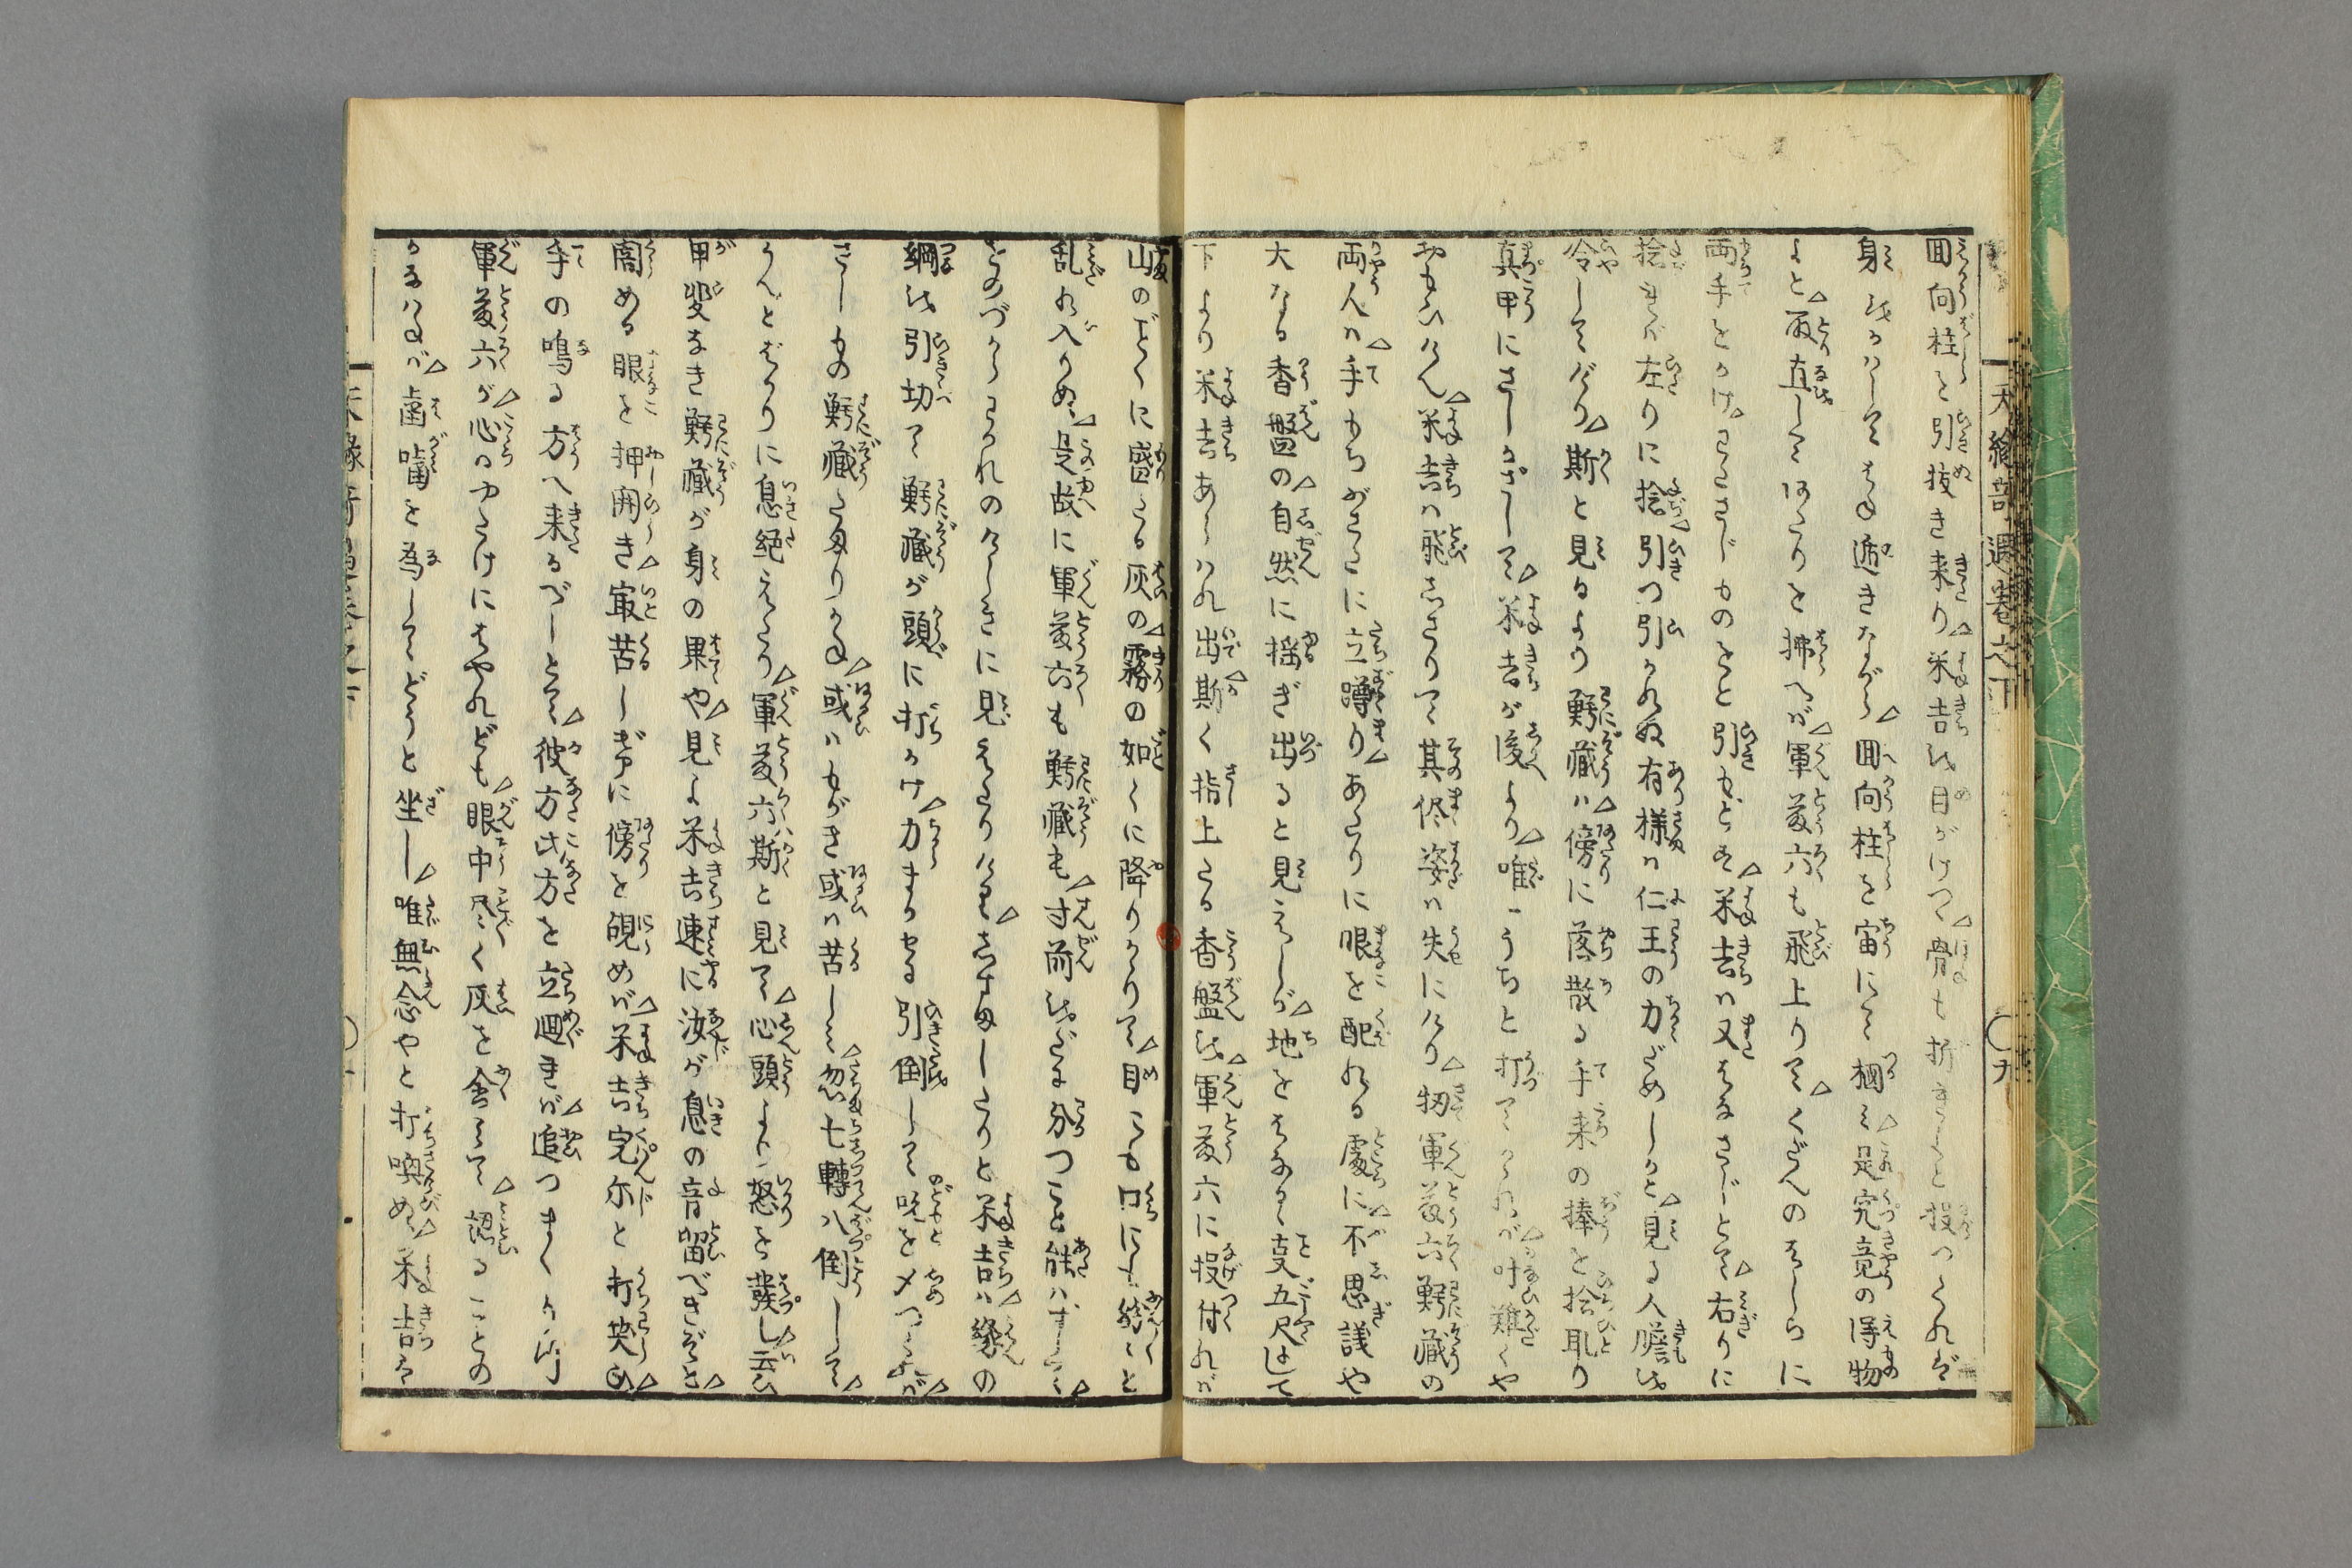 回向柱を引抜き来り米吉を目がけつゝ骨も折よと投つくれば
身をかはしてはね避きながら回向柱を宙にて掴み是究竟の得物
よと取直してほとりを拂へば軍藤六も飛上りてくだんのはしらに
両手をかけわたさじものをと引もどす米吉は又はなさじとて右りに
捻れば左りに捻引つ引かれぬ有様は仁王の力だめしかと見る人膽を
冷してけり斯と見るより鰐蔵は傍に落散る手来の捧を捻取り
真甲にさしかざして米吉が後より唯一うちと打てかゝれば叶難くや
おもひけん米吉は飛しさりて其侭姿は失にけり扨軍藤六鰐蔵の
両人は手もちぶさたに立蹲りあたりに眼を配れる處に不思議や
大なる香盤の自然に揺ぎ出ると見えしが地をはなるゝ叓五尺ばして
下より米吉あらはれ出斯く指上たる香盤を軍藤六に投付れば
山のごとくに盛たる灰の霧の如くに降りかゝりて目にも口にも紛々と
乱れ入りぬ是故に軍藤六も鰐蔵も寸前をだに分つこと能はずして
そのづからわかれのけしきに見えたりける しすましたりと米吉は縁の
綱を引切て鰐蔵が頭に打かけ力まかせる引倒して咙を〆つくれば
さしもの鰐蔵たまりかね或はもがき或は苦しみ忽七轉八倒して
うんとばかりに息絶えたり軍藤六斯と見て心頭より怒を發し云
甲斐なき鰐蔵が身の果や見よ米吉連に汝が息の音留べきぞと
闇める眼を押開き最苦しげに傍を睨めば米吉完尓と打笑ひ
手の鳴る方へ来るべしとて彼方此方を立廻れば追つまくりつ
軍藤六が心はたけにはやれども眼中尽く灰を含みて認ることの
かなはねば歯噛を為してどうと坐し唯無念やと打喚めば米吉は